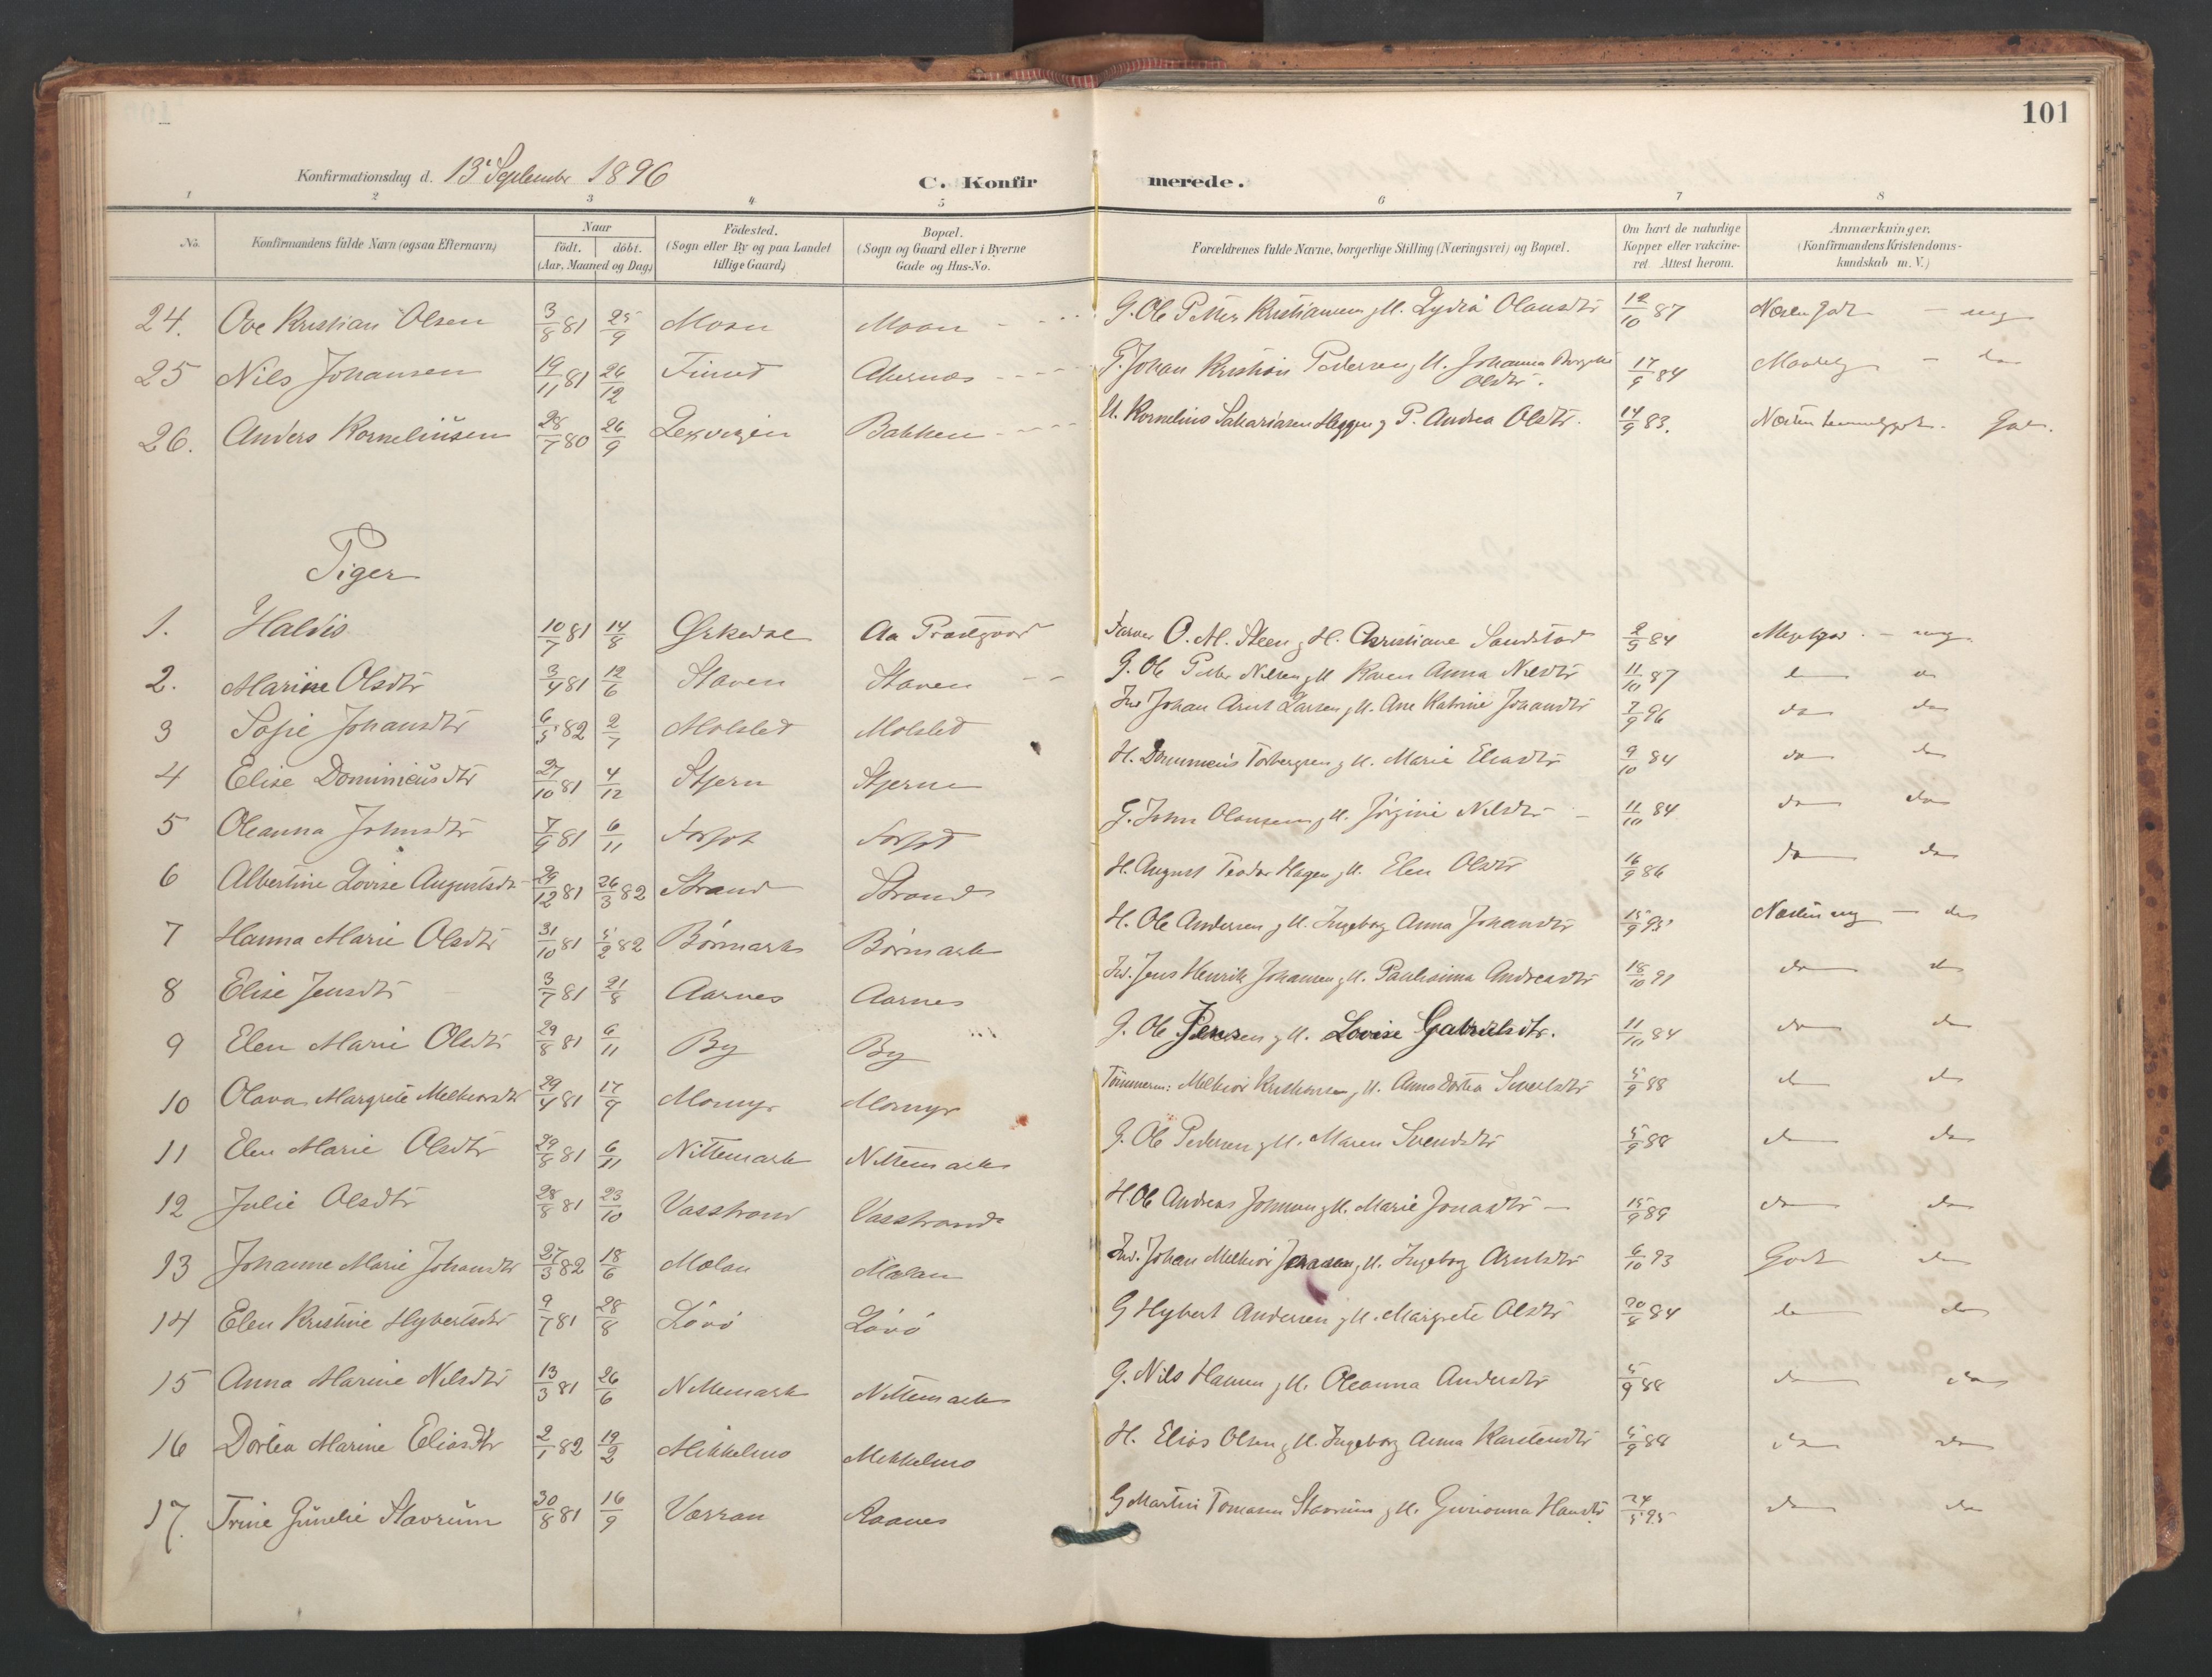 101
Konfirmationsdag d. 13 September 1896
C. Konfir merede.
1 2 3 4 5 6 7 8
No. Konfirmandens fulde Navn (ogsaa Efternavn) Naar födt. döbt. (Aar, Maaned og Dag) Födested. (Sogn eller By og paa Landet tillige Gaard) Bopæl. (Sogn og Gaard eller i Byerne Gade og Hus-No. Forældrenes fulde Navne, borgerlige Stilling (Næringsvei) og Bopæl. Om havt de naturlige Kopper eller vakcineret. Attest herom. Anmærkninger. (Konfirmandens Kristendomskundskab m. V.)
24. Ove Kristian Olsen 3/8 81 25/9 Moan Moan G. Ole Petter Kristiansen g H. Lydia Olausdtr 12/10 87
25 Nils Johansen 19/11 81 26/12 Akernes G. Johan Kristian Pedersen g H. Johanna Olsdtr. 17/9 84
26. Anders Korneliusen 28/7 80 26/9 Lexvigen Bakken Kornelius Sakariasen Heggen g P. Andrea Olsdtr. 14/9 83.
Piger
1. Haldis 10/7 81 14/8 Aa Præstgaard Farver O. M. Steen g H. Christiane Sandstad 2/9 84
2. Marine Olsdtr 3/4 81 12/6 Staven Staven G. Ole Petter Nilsen g H Karen Anna Nilsdtr 11/10 87
3 Sofie Johansdtr 6/5 82 2/7 Molsled Molsled Ind Johan Arnt Larsen g H. Ane Katrine Johansdtr 7/9 96 do do
4 Elise Dominicusdtr 27/10 81 4/12 Stjern Stjern H. Dominicus Torbergsen g H. Marie Eliasdtr 9/10 84 do do
5 Oleanna Johnsdtr 7/9 81 6/11 G. John Olausen g H. Jörgine Nilsdtr 11/10 84 do do
6 Albertine Lovise Augustsdtr 29/12 81 26/3 82 Strand Strand H. August Teodor Hagen g H. Elen Olsdtr 16/9 86 do do
7 Hanna Marie Olsdtr 31/10 81 5/2 82 Börmark Börmark H. Ole Andersen g H. Ingeborg Anna Johansdtr 15/9 95 do
8 Elise Jensdtr 3/7 81 21/8 Aarnes Aarnes Ind. Jens Henrik Johansen g H. Paulisima Andreasdtr 18/10 91 do do
9 Elen Marie Olsdtr 29/8 81 6/11 By By G. Ole Jensen g H. Lovise Gabrielsdtr. 11/10 84 do do
10 Olava Margrete Melkiorsdtr 29/4 81 17/9 Momyr Momyr Tömmerm: Melkior Kristiansen g H. Anna Dortea Sivertsdtr 5/9 88 do do
11 Elen Marie Olsdtr 29/8 81 6/11 Nittemark Nittemark G. Ole Pedersen g H. Maren Svendsdtr 5/9 88 do do
12 Julie Olsdtr 28/8 81 23/10 Vasstrand Vasstrand H. Ole Andreas Johnsen g H. Marie Jonasdtr 15/9 89 do do
13 Johanne Marie Johansdtr 27/3 82 18/6 Melan Melan Ind. Johan Melkior g H. Ingeborg Arntsdtr 6/10 93 Godt do
14 Elen Kristine Hybertsdtr 9/7 81 28/8 Lövö Lövö G Hybert Andersen g H. Margrete Olsdtr 20/8 84 do do
15 Anna Marine Nilsdtr 13/3 81 26/6 Nittemark Nittemark G. Nils Hansen g H. Oleanna Andersdtr 5/9 88 do do
16 Dortea Marine Eliasdtr 2/1 82 12/2 Mikkelmo Mikkelmo H. Elias Olsen g H. Ingeborg Anna Karstensdtr 5/9 88 do do
17. Trine Gunelie Stavrum 30/8 81 16/9 Værran Raanes G Martin Tomasen Stavrum g H. Hansdtr 24/5 95 do do